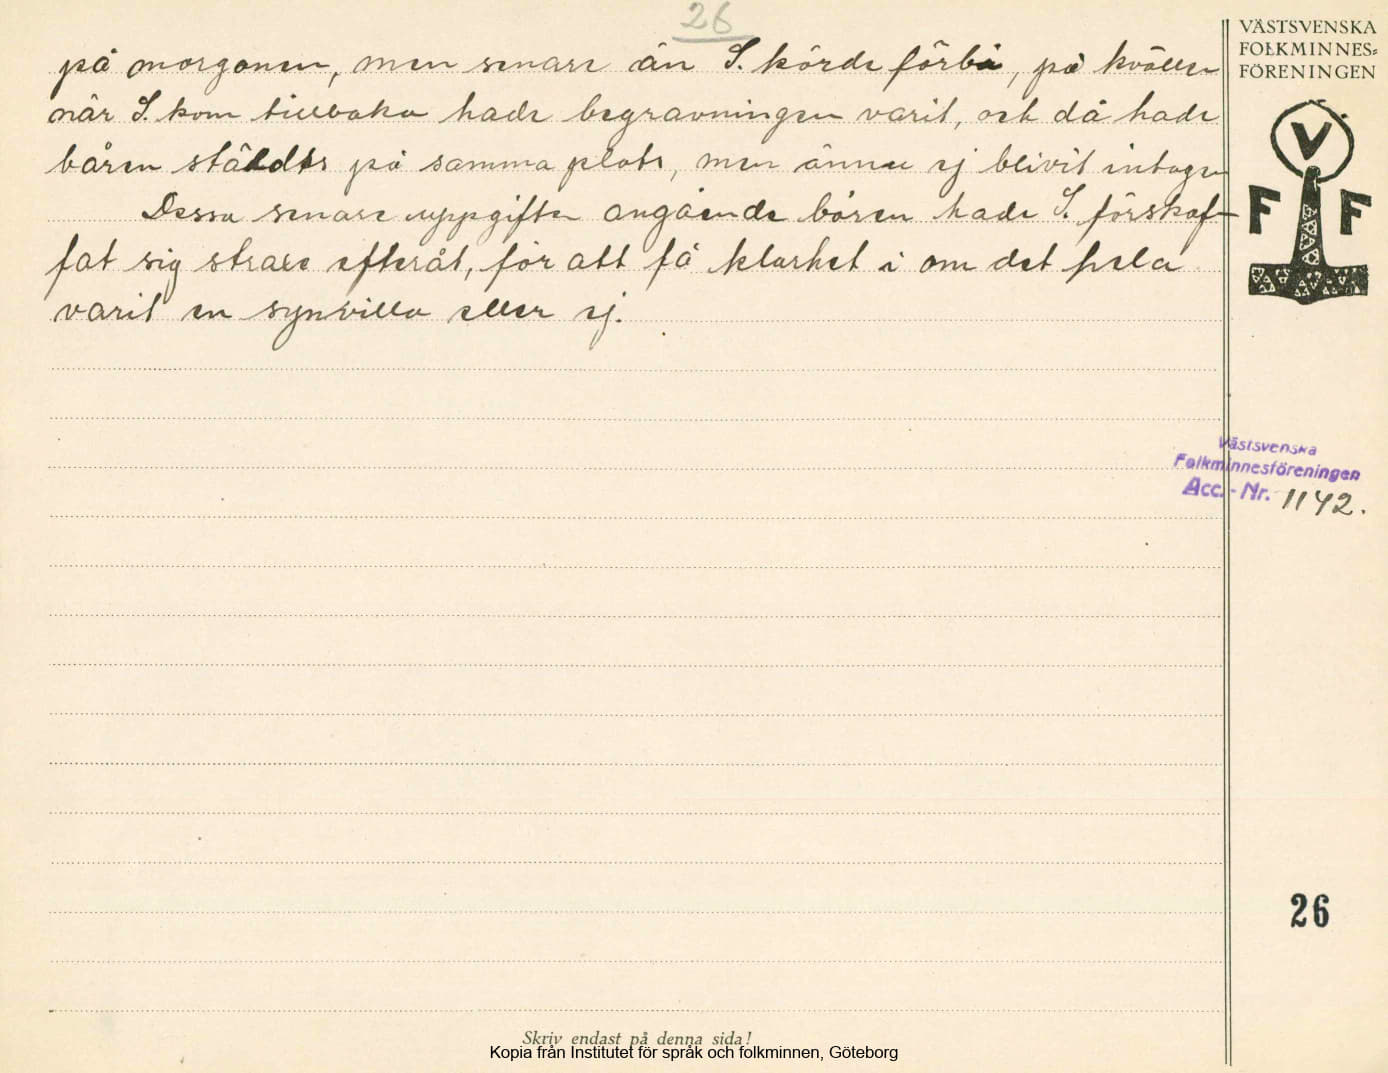 26
på morgonen, men senare än S. körde förbi, på kvällen
när S. kom tillbaka hade begravningen varit, och då hade
båren ställdts på samma plats, men ännu ej blivit intagen
Dessa senare uppgifter angående båren hade S. förskaf-
fat sig straxe efteråt, för att få klarhet i om det hela
varit en synvilla eller ej.
VÄSTSVENSKA
FOLKMINNES=
FÖRENINGEN
V
F F
Västsvenska
Folkminnesföreningen
Acc.-Nr. 1142.
26
Skriv endast på denna sida!
Kopia från Institutet för språk och folkminnen, Göteborg